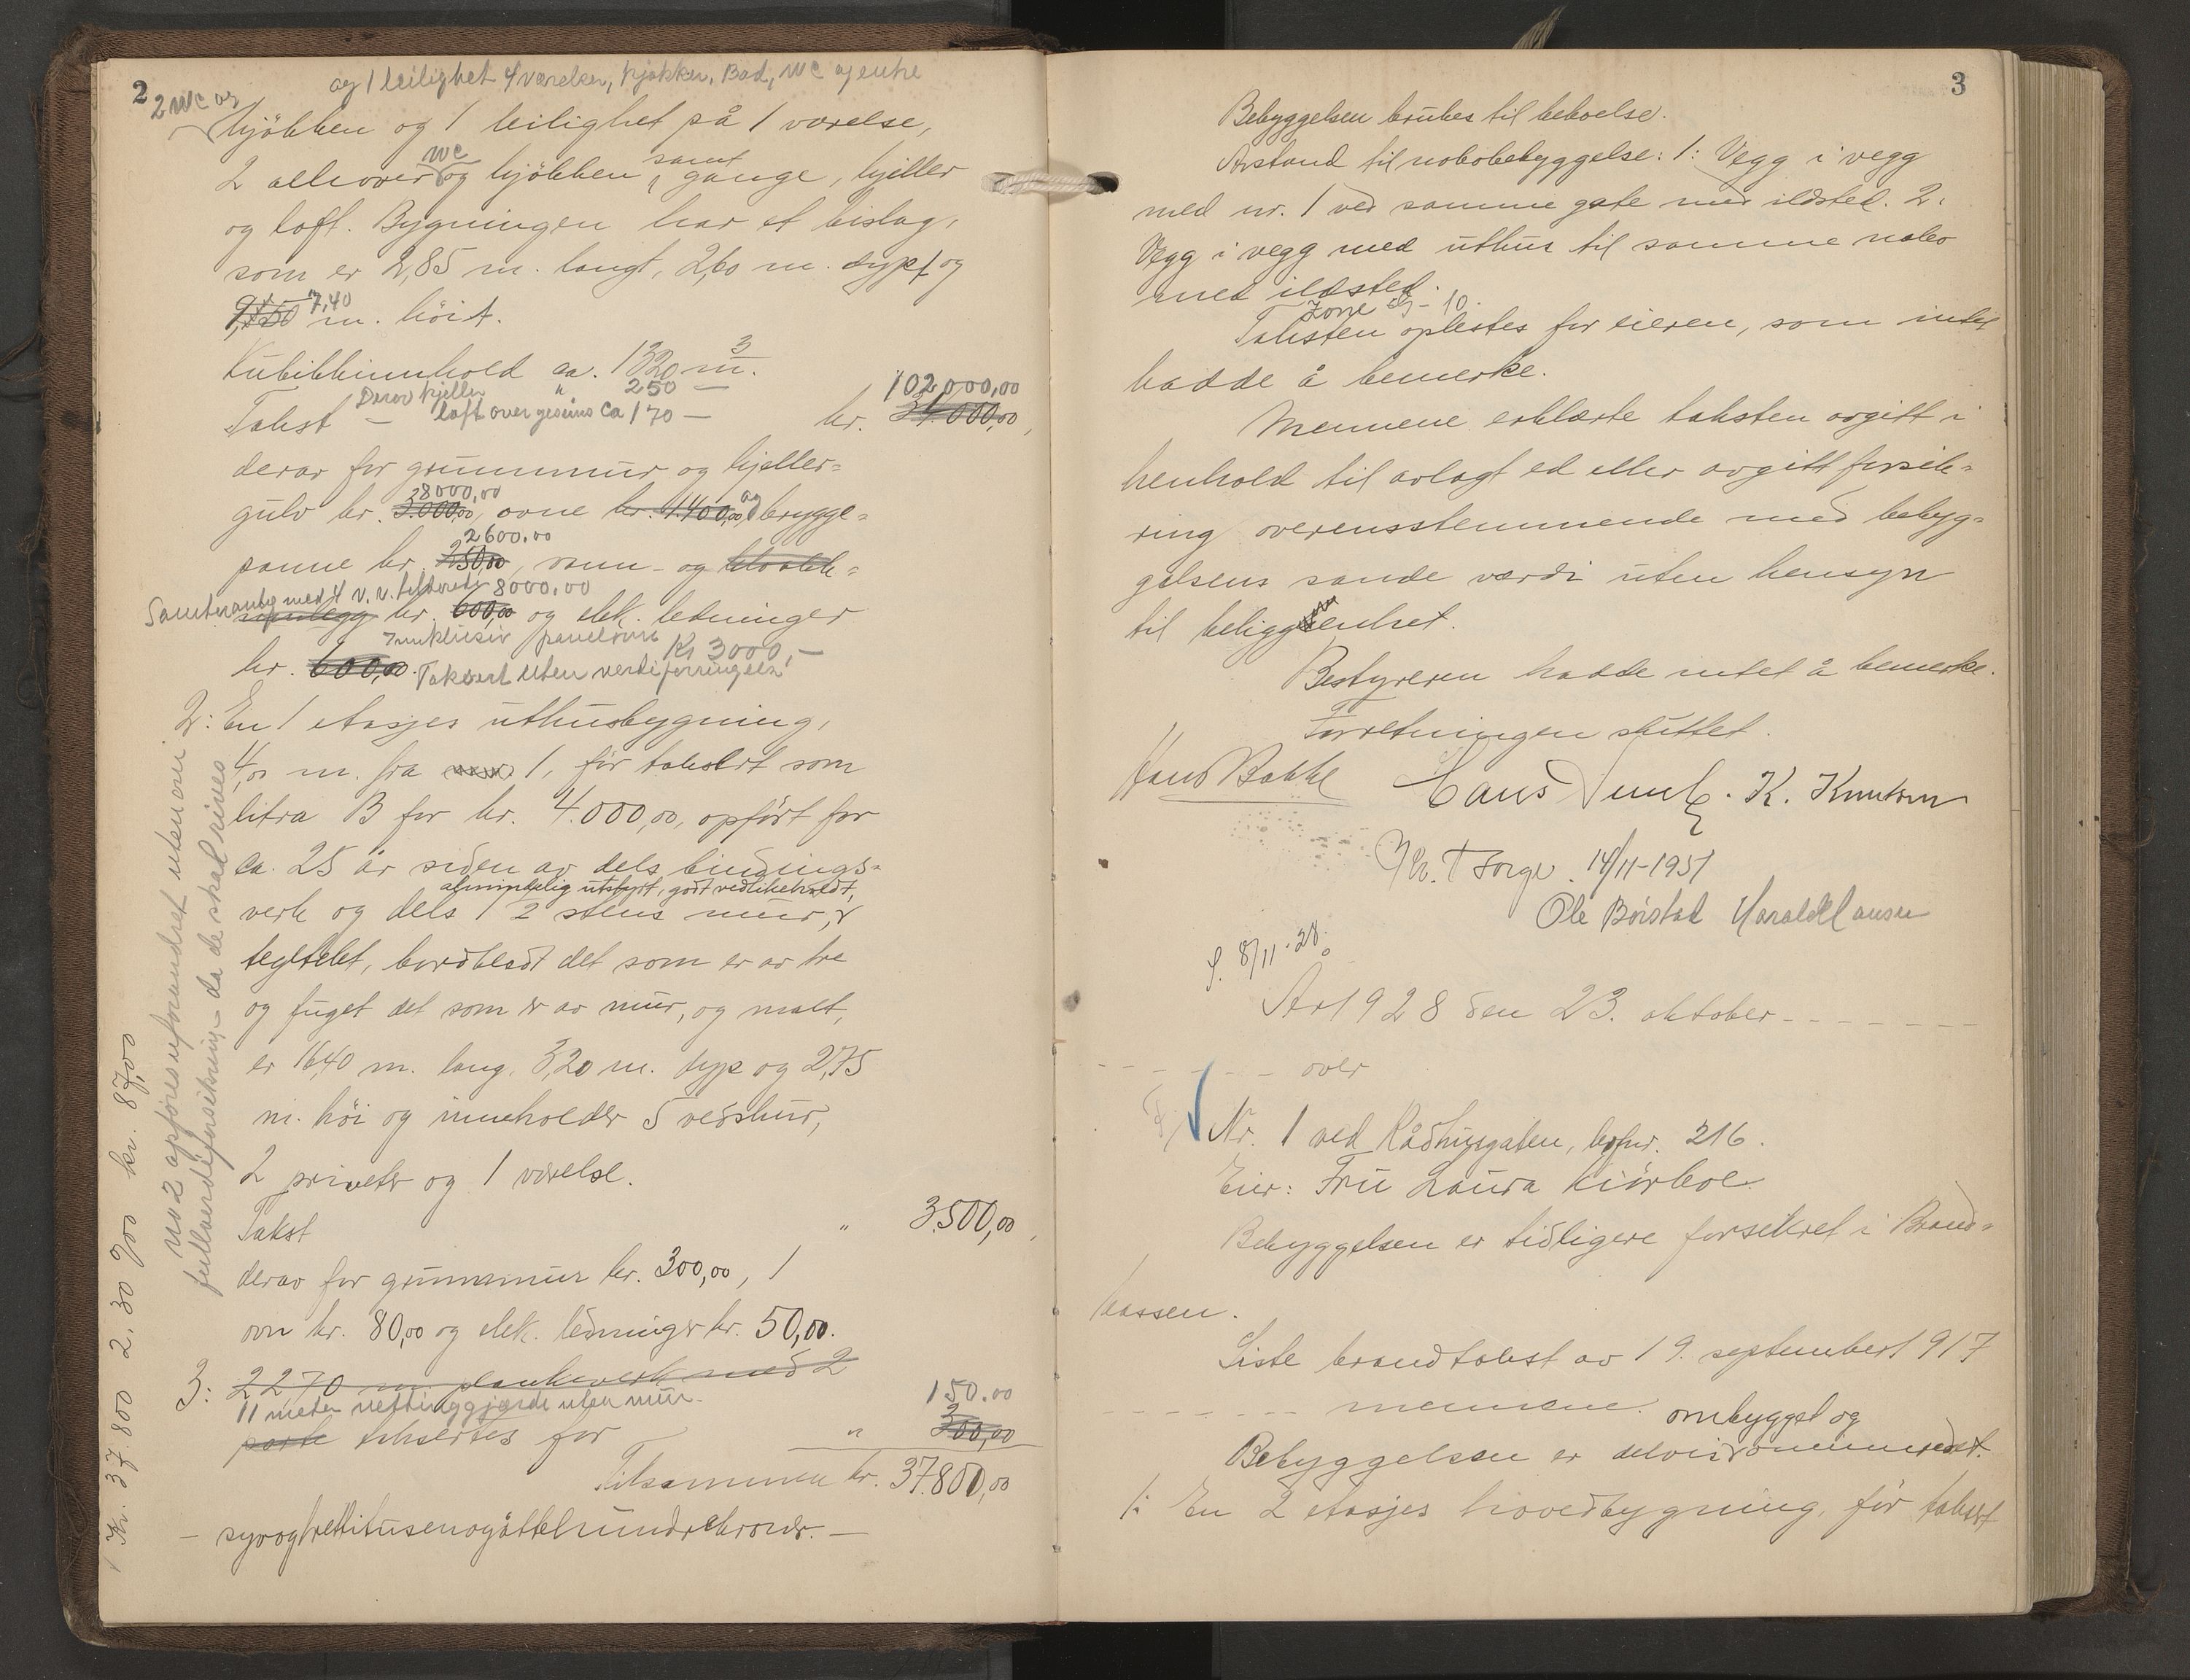 2
og 1 leilighet 4 værelser, kjøkken, Bad, WC og entre
2 WC og
kjökken og 1 leilighet på 1 værelse,
WC
samt
2 alkover og kjökken, gange, kjeller
og loft. Bygningen har et bislag,
som er 2,85 m. langt, 2,60 m. dypt og
7,40
m. höit.
Kubikkinnhold ca. 1320 m³.
Derav kjeller " 250 —
102000,00
loft over gesims ca 170 —
Takst — kr. 34.000,00,
derav for grunnmur og kjeller=
8000,00
gulv kr. 3.000,00, ovne kr. 1.400,00, og brygge=
2600.00
panne kr. 250,00, vann- og kloakk=
med 4 v. v. 8000.00
anlegg kr. 600,00 og elek. ledninger
Innklusiv panelovne Kr 3000,—
kr. 600,00. Taksert uten verdiforringelse
2: En 1 etasjes uthusbygning,
4,00 m. fra 1, för taksert som
litra B for kr. 4.000,00, opfört for
ca. 25 år siden av dels bindings=
almindelig utstyrt, godt vedlikeholdt,
verk og dels 1/2 stens mur,
tegltekt, bordkledt det som er av tre
og fuget det som er av mur, og malt,
er 16,40 m. lang, 3,20 m. dyp og 2,75
m. höi og inneholder 5 vedskur,
2 priveter og 1 værelse.
Takst " 3.500,00,
derav for grunnmur kr. 300,00, 1
ovn kr. 80,00 og elek. ledninger kr. 50,00.
3: 22,70 m plankeverk med 2
11 meter nettinggjærde uten mur. 150.00
porte takseres for " 300,00
Tilsammen kr. 37.800,00
— syvogtrettitusenogåttehundrekroner. —
No 2 opføres uforandret utenom
fullverdiforsikring — da de skal rives
Kr. 37.800 2,30 %00 kr. 87,00
3
Bebyggelsen brukes til beboelse.
Avstand til nabobebyggelse: 1: Vegg i vegg
med nr. 1 ved samme gate med ildsted. 2:
Vegg i vegg med uthus til samme nabo
med ildsted.
Zone - 10.
Taksten oplestes for eieren, som intet
hadde å bemerke.
Mennene erklærte taksten avgitt i
henhold til avlagt ed eller avgitt forsik=
ring overensstemmende med bebyg=
gelsens sande værdi uten hensyn
til beliggenhet.
Bestyreren hadde intet å bemerke.
Forretningen sluttet.
Hans Bakke Hans K. Knutsen
14/11-1951
Ole Børstad Harald Hansen
S. 8/11.28.
År 1928 den 23. oktober - - - - - - -
- - - - - - - over
Nr. 1 ved Rådhusgaten, br.nr. 216.
Eier: Fru Laura Kiörboe.
Bebyggelsen er tidligere forsikret i Brand=
kassen.
Siste brandtakst av 19. september 1917
- - - - - - - mennene.
ombygget og
Bebyggelsen er delvis ominnredet.
1: En 2 etasjes hovedbygning, för taksert